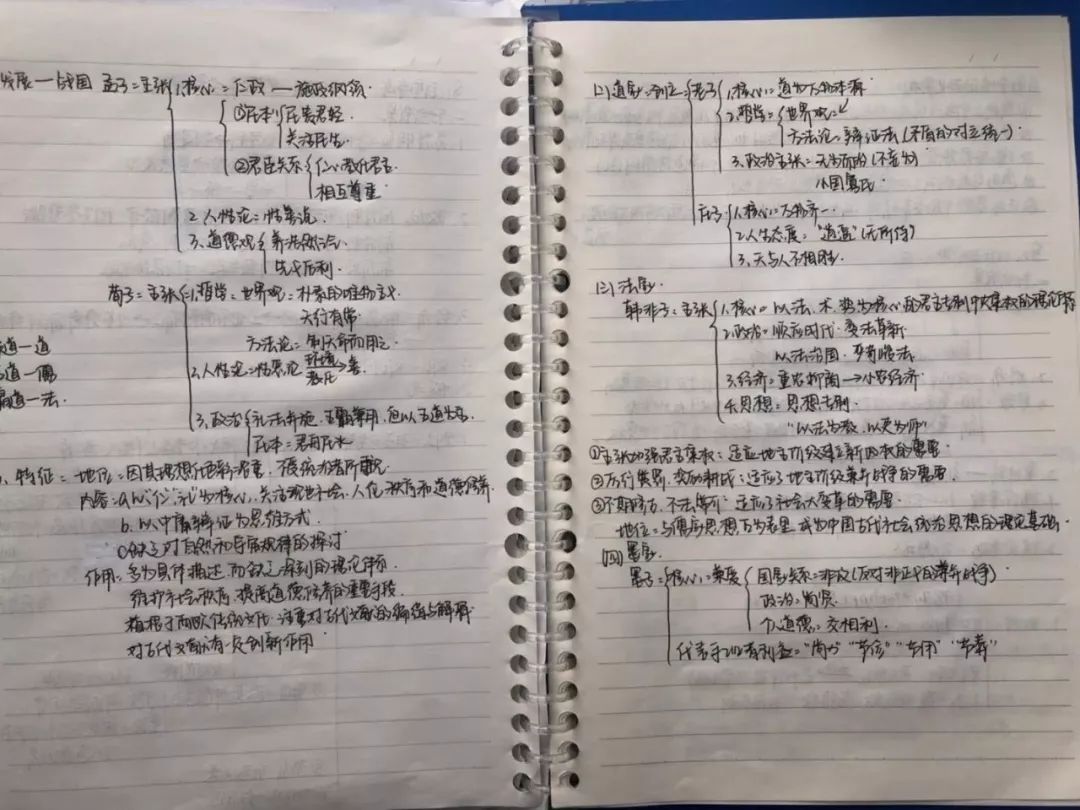 发展一战国 孟子=主张 1.核心=仁政 — 施政纲领
①民本 民贵君轻.
关注民生
②君臣关系 仁心教化君主
相互尊重
2.人性论=性善说.
3.道德观 养浩然之气
先义后利.
荀子=主张 1.哲学=世界观=朴素的唯物主义
天行有常
方法论=制天命而用之
道一道
2.人性论=性恶论 环境 教化→善.
道一儒
道一法.
3.政治 礼法并施.王霸兼用,但以王道为主
民本=君舟民水
特征=地位=因其理想化色彩浓重,不被统治者所重视
内容=a.以"仁""礼"为核心,关注现世社会、人伦秩序和道德修养
b.以中庸辩证为思维方式.
c.缺乏对自然和客观规律的探讨
作用=多为具体描述,而缺乏深刻的理论体系
维护社会秩序,提高道德修养的重要手段
植根于而欧传统文化.注重对古代文献的编纂与解释
对古代文献有一定创新作用.
(二)道家=创立 老子 1.核心=道为万物本源
2.哲学=世界观=↙
方法论=辩证法(矛盾的对立统一).
3.政治主张=无为而治(不妄为)
小国寡民.
庄子 1.核心=万物齐一.
2.人生态度:"逍遥"(无所待)
3.天与人不相胜.
(三)法家.
韩非子=主张 1.核心=以法、术、势为核心的君主专制中央集权的理论体系
2.政治=顺应时代.变法革新
以法治国.严刑峻法
3.经济=重农抑商→小农经济
4.思想=思想专制.
"以法为教,以吏为师"
①主张加强君主集权:适应地主阶级建立新政权的需要
②厉行赏罚,奖励耕战:适应了地主阶级兼并战争的需要.
③不期修古,不法常可:适应了社会大变革的需要.
地位=与儒家思想互为表里,成为中国古代社会统治思想的理论基础.
(四)墨家.
墨子=核心=兼爱 国家关系=非攻(反对非正义的兼并战争)
政治=尚贤.
个人道德=交相利.
代表手工业者利益="尚力""节俭""节用""节葬"